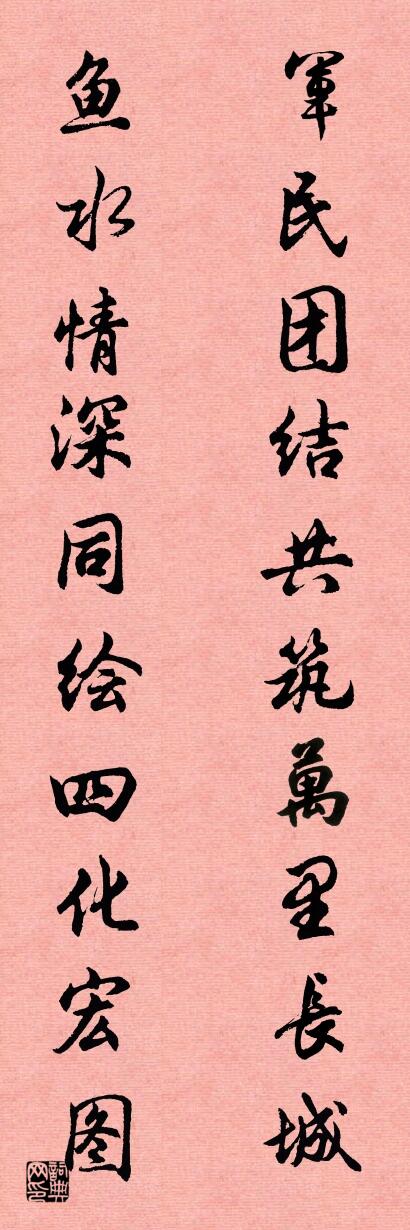 軍民团结共筑萬里長城
鱼水情深同绘四化宏图
詞典网印